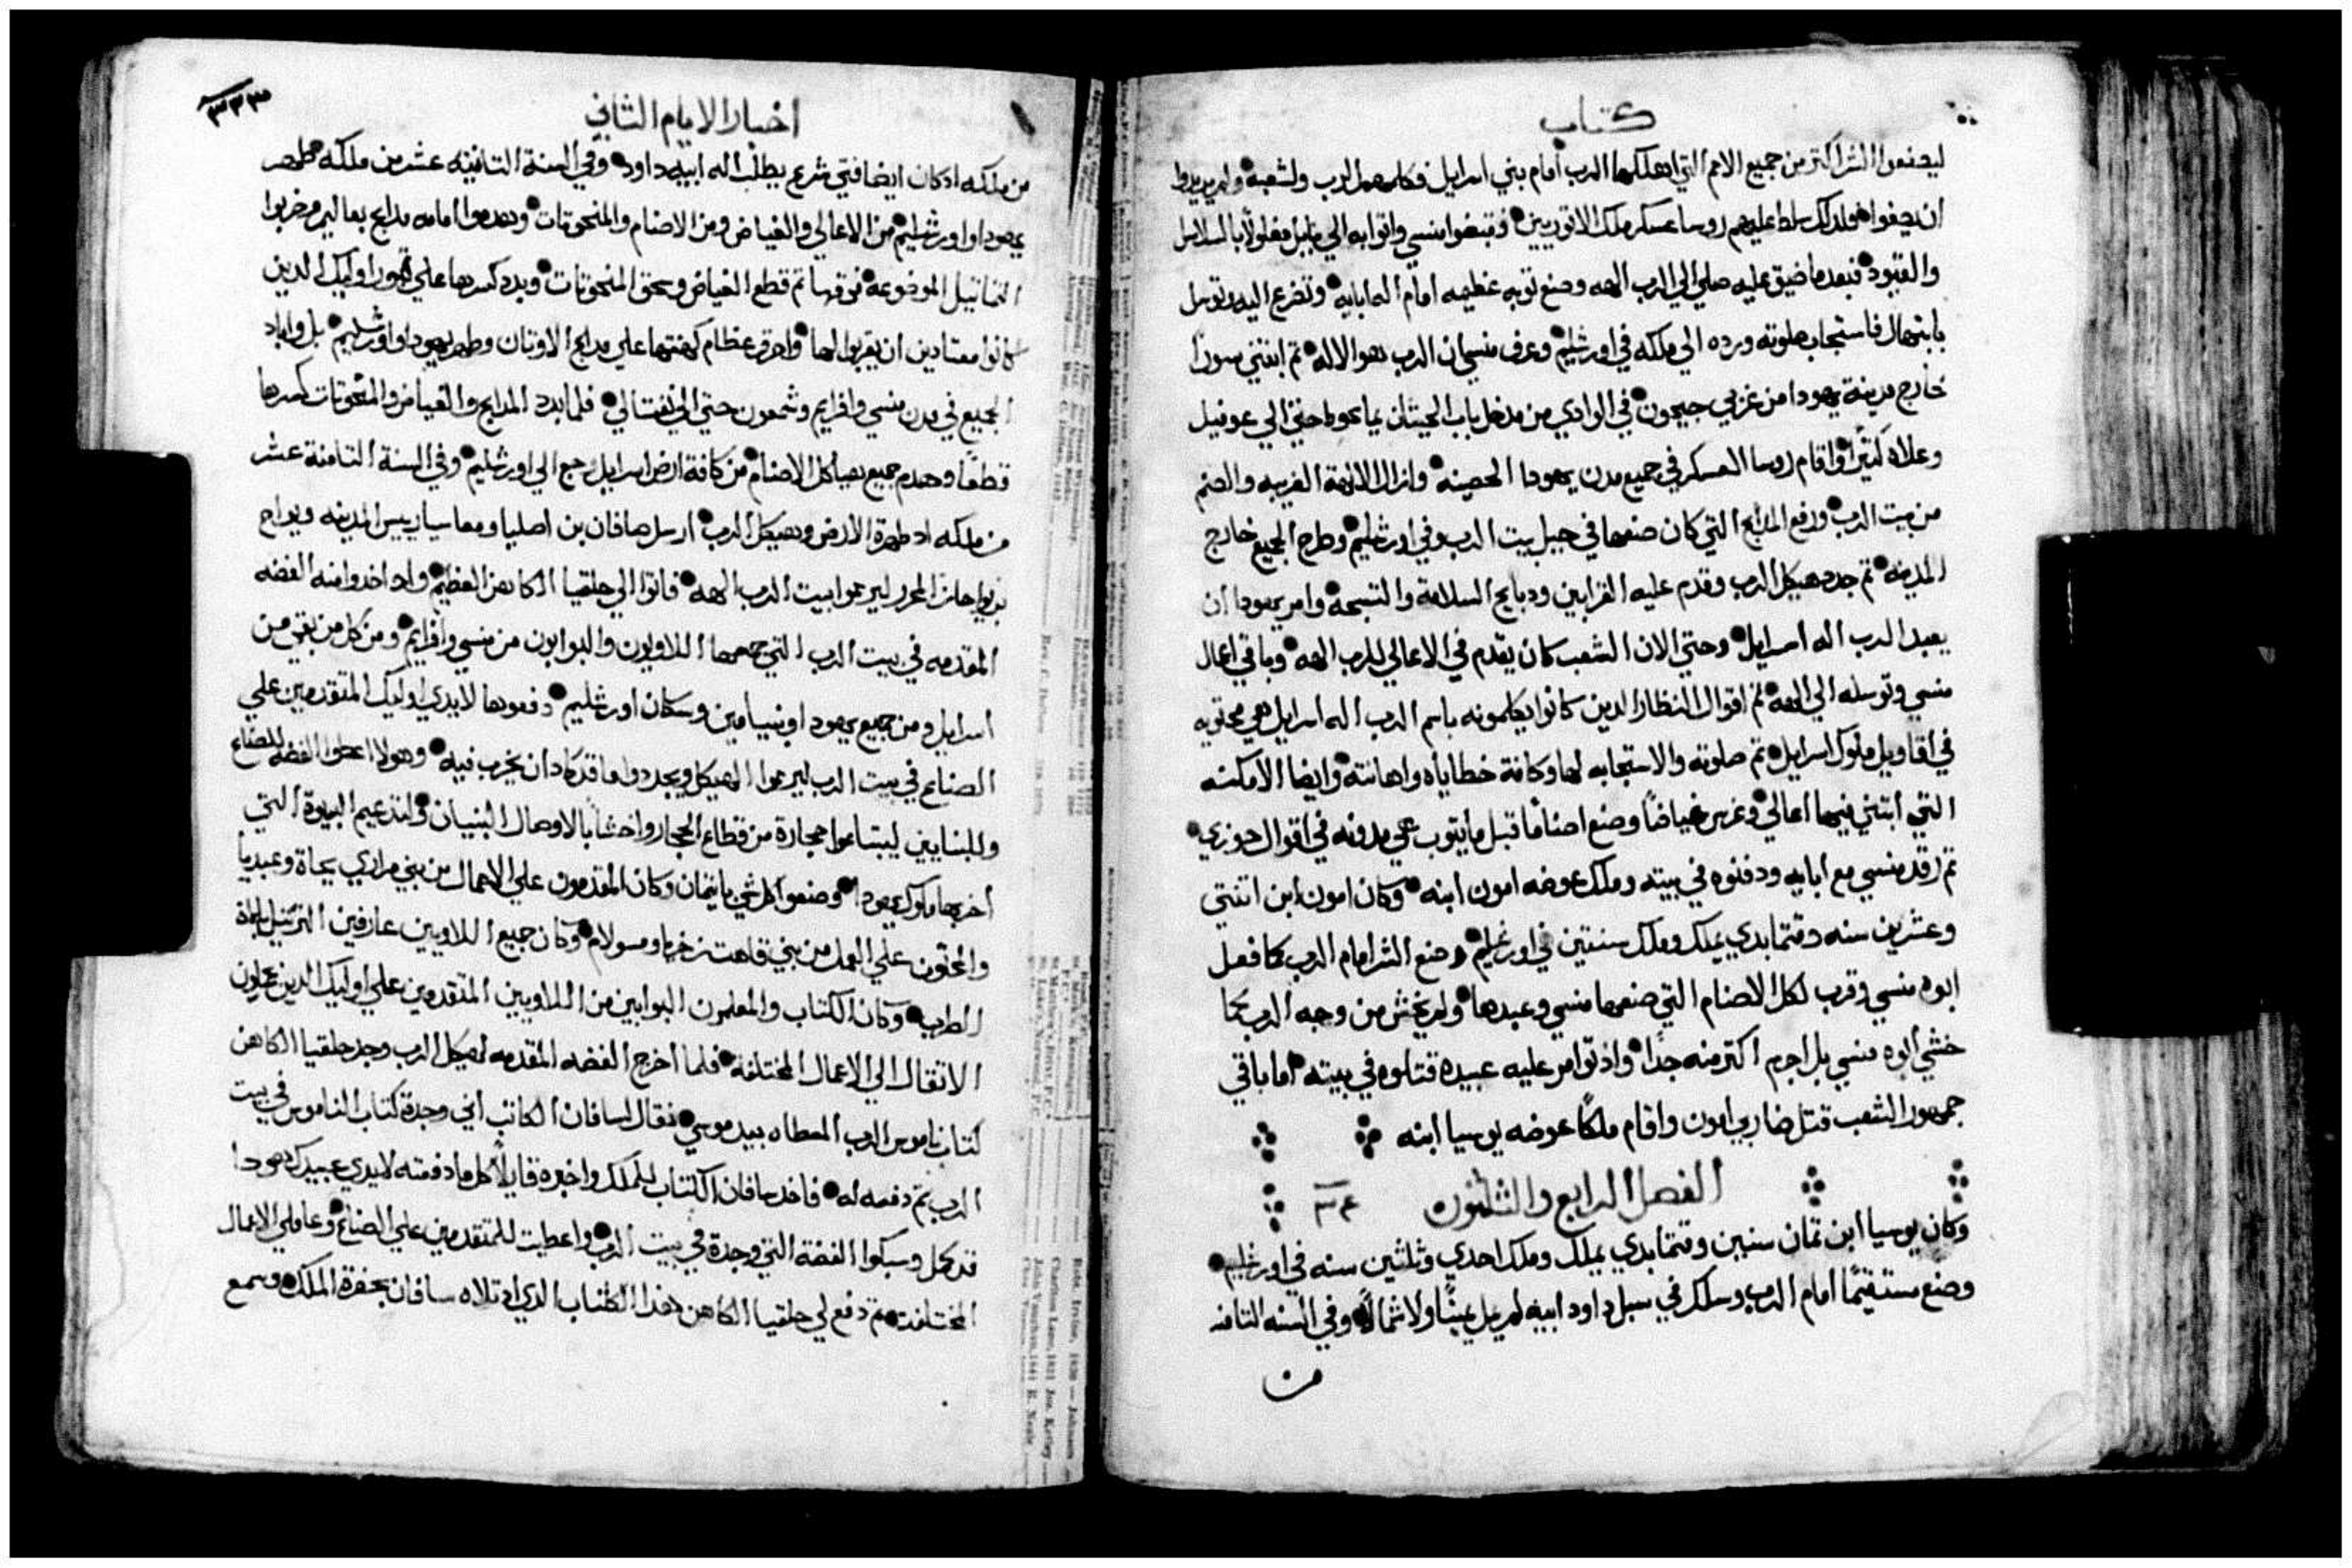 كتاب
ليصنعوا الشر اكتر من جميع الامم التي اهلكها الرب امام بني اسرايل فكلمهم الرب ولشعبه ولم يريدوا
ان يصغوا فلدلك سلط عليهم روسا عسكر ملك الاتوريين فقبضوا منسي واتوا به الي بابل مغلولاً بالسلاسل
والقيود فبعدما ضيق عليه صلي الي الرب الهه وصنع توبه عظيمه امام اله ابايه وتضرع اليه وتوسل
بابتهال فاستجاب صلوته ورده الي ملكه في اورشليم وعرف منسي ان الرب هو الاله تم ابتني سوراً
خارج مدينة يهودا من غربي جيحون في الوادي من مدخل باب الحيتان بما يحوط حتي الي عوفيل
وعلاه كتيراً واقام روسا العسكر في جميع مدن يهودا الحصينه وازال الالهة الغريبه والصنم
من بيت الرب ورفع المدابح التي كان صنعها في جبل بيت الرب وفي اورشليم وطرح الجميع خارج
المدينه تم جدد هيكل الرب وقدم عليه القرابين ودبايح السلامة والتسبحه وامر يهودا ان
يعبد الرب اله اسرايل وحتي الان الشعب كان يقدم في الاعالي للرب الهه وباقي اعمال
منسي وتوسله الي الهه تم اقوال النظار الدين كانوا يكلمونه باسم الرب اله اسرايل هي محتويه
في اقاويل ملوك اسرايل تم صلوته والاستجابه لها وكافة خطاياه واهانته وايضا الامكنه
التي ابتني فيها اعالي وغرس غياضاً وصنع اصناماً قبل ما يتوب هي مدونه في اقوال حوزي
تم رقد منسي مع ابايه ودفنوه في بيته وملك عوضه امون ابنه وكان امون ابن اتنتي
وعشرين سنه وقتما بدي يملك وملك سنتين في اورشليم وصنع الشر امام الرب كما فعل
ابوه منسي وقرب لكل الاصنام التي صنعها منسي وعبدها ولم يخش من وجه الرب كما
خشي ابوه منسي بل اجرم اكتر منه جداً واذ توامر عليه عبيده قتلوه في بيته اما باقي
جمهور الشعب قتل ضاربي امون واقام ملكاً عوضه يوسيا ابنه
الفصل الرابع والثلثون ٣٤
وكان يوسيا ابن تمان سنين وقتما بدي يملك وملك احدي وثلثين سنه في اورشليم
وصنع مستقيمًا امام الرب وسلك في سبل داود ابيه لم يمل يميناً ولا شمالاً وفي السنه التامنه
من
اخبار الايام الثاني
٣٣٣
من ملكه اد كان ايضا فتي شرع يطلب اله ابيه داود وفي السنة التانيه عشر من ملكه طهر
يهودا واورشليم من الاعالي والغياض ومن الاصنام والمنحوتات وهدموا امامه مدابح بعاليم وخربوا
التماتيل الموضوعه فوقها تم قطع الغياض وسحق المنحوتات وبدد كسرها علي قبور اوليك الدين
كانوا معتادين ان يقربوا لها واحرق عظام كهنتها علي مدابح الاوتان وطهر يهودا واورشليم بل واباد
الجميع في مدن منسي وافرايم وشمعون حتي الي نفتالي فلما بدد المدابح والغياض والمنحوتات كسرها
قطعاً وهدم جميع هياكل الاصنام من كافة ارض اسرايل رجع الي اورشليم وفي السنة التامنة عشر
من ملكه اد طهرة الارض وهيكل الرب ارسل صافان بن اصليا ومعاسيا رييس المدينه ويواح
بن يواحاز المحرر ليرمموا بيت الرب الهه فاتوا الي حلقيا الكاهن العظيم واد اخدوا منه الفضه
المقدمه في بيت الرب التي جمعها اللاويون والبوابون من منسي وافرايم ومن كل من بقي من
اسرايل ومن جميع يهودا وبنيامين وسكان اورشليم دفعوها لايدي اوليك المتقدمين علي
الصناع في بيت الرب ليرمموا الهيكل ويجددوا ما قد كاد ان يخرب فيه وهولا اعطوا الفضه للصناع
وللبنايين ليبتاعوا حجارة من قطاع الحجار واخشاباً لاوصال البنيان ولتدعيم البيوة التي
اخربها ملوك يهودا وصنعوا كل شي بايتمان وكان المقدمون علي الاعمال من بني مراري يحاة وعبديا
والمحتون علي العمل من بني قاهت زخريا ومسولام وكان جميع اللاويين عارفين الترتيل بالة
الطرب وكان الكتاب والمعلمون البوابين من اللاويين المتقدمين علي اوليك الدين يحملون
الاتقال الي الاعمال المختلفه فلما اخرج الفضه المقدمه لهيكل الرب وجد حلقيا الكاهن
كتاب ناموس الرب المعطاه بيد موسي فقال لسافان الكاتب اني وجدة كتاب الناموس في بيت
الرب تم دفعه له فاخد سافان الكتاب للملك واخبره قايلاً كل ما دفعته لايدي عبيدك هودا
قد كمل وسبكوا الفضة التي وجدة في بيت الرب واعطيت للمتقدمين علي الصناع وعاملي الاعمال
المختلفه تم دفع لي حلقيا الكاهن هدا الكتاب الدي اد تلاه سافان بحضرة الملك وسمع